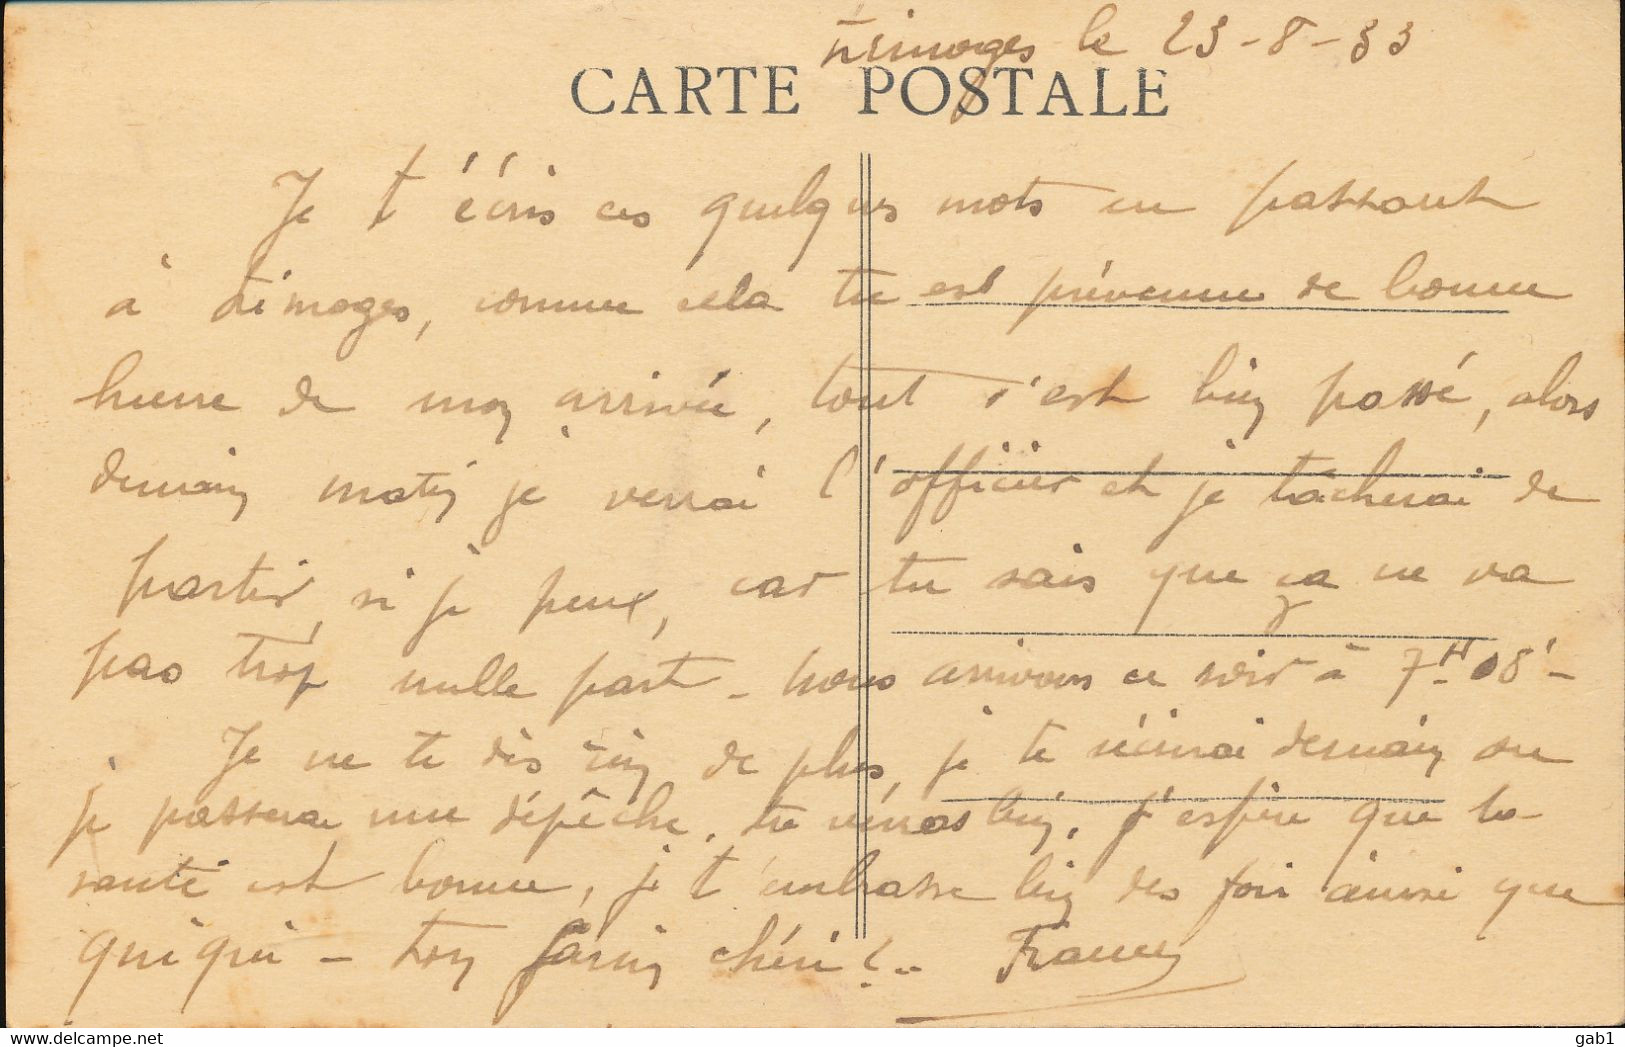 Limoges le 23-8-33
CARTE POSTALE
Je t'écris ces quelques mots en passant
à Limoges, comme cela tu est prévenue de bonne
heure de mon arrivée, tout s'est bien passé, alors
demain matin je verrai l'officier et je tâcherai de
partir, si je peux, car tu sais que ça ne va
pas trop nulle part - nous arrivons ce soir à 7H08' -
Je ne te dis rien de plus, je te récirai demain ou
je passerai une dépêche, tu verras bien, j'espère que ta
santé est bonne, je t'embrasse bien des fois ainsi que
quiqui - ton chéri !..
delcampe.net
gab1